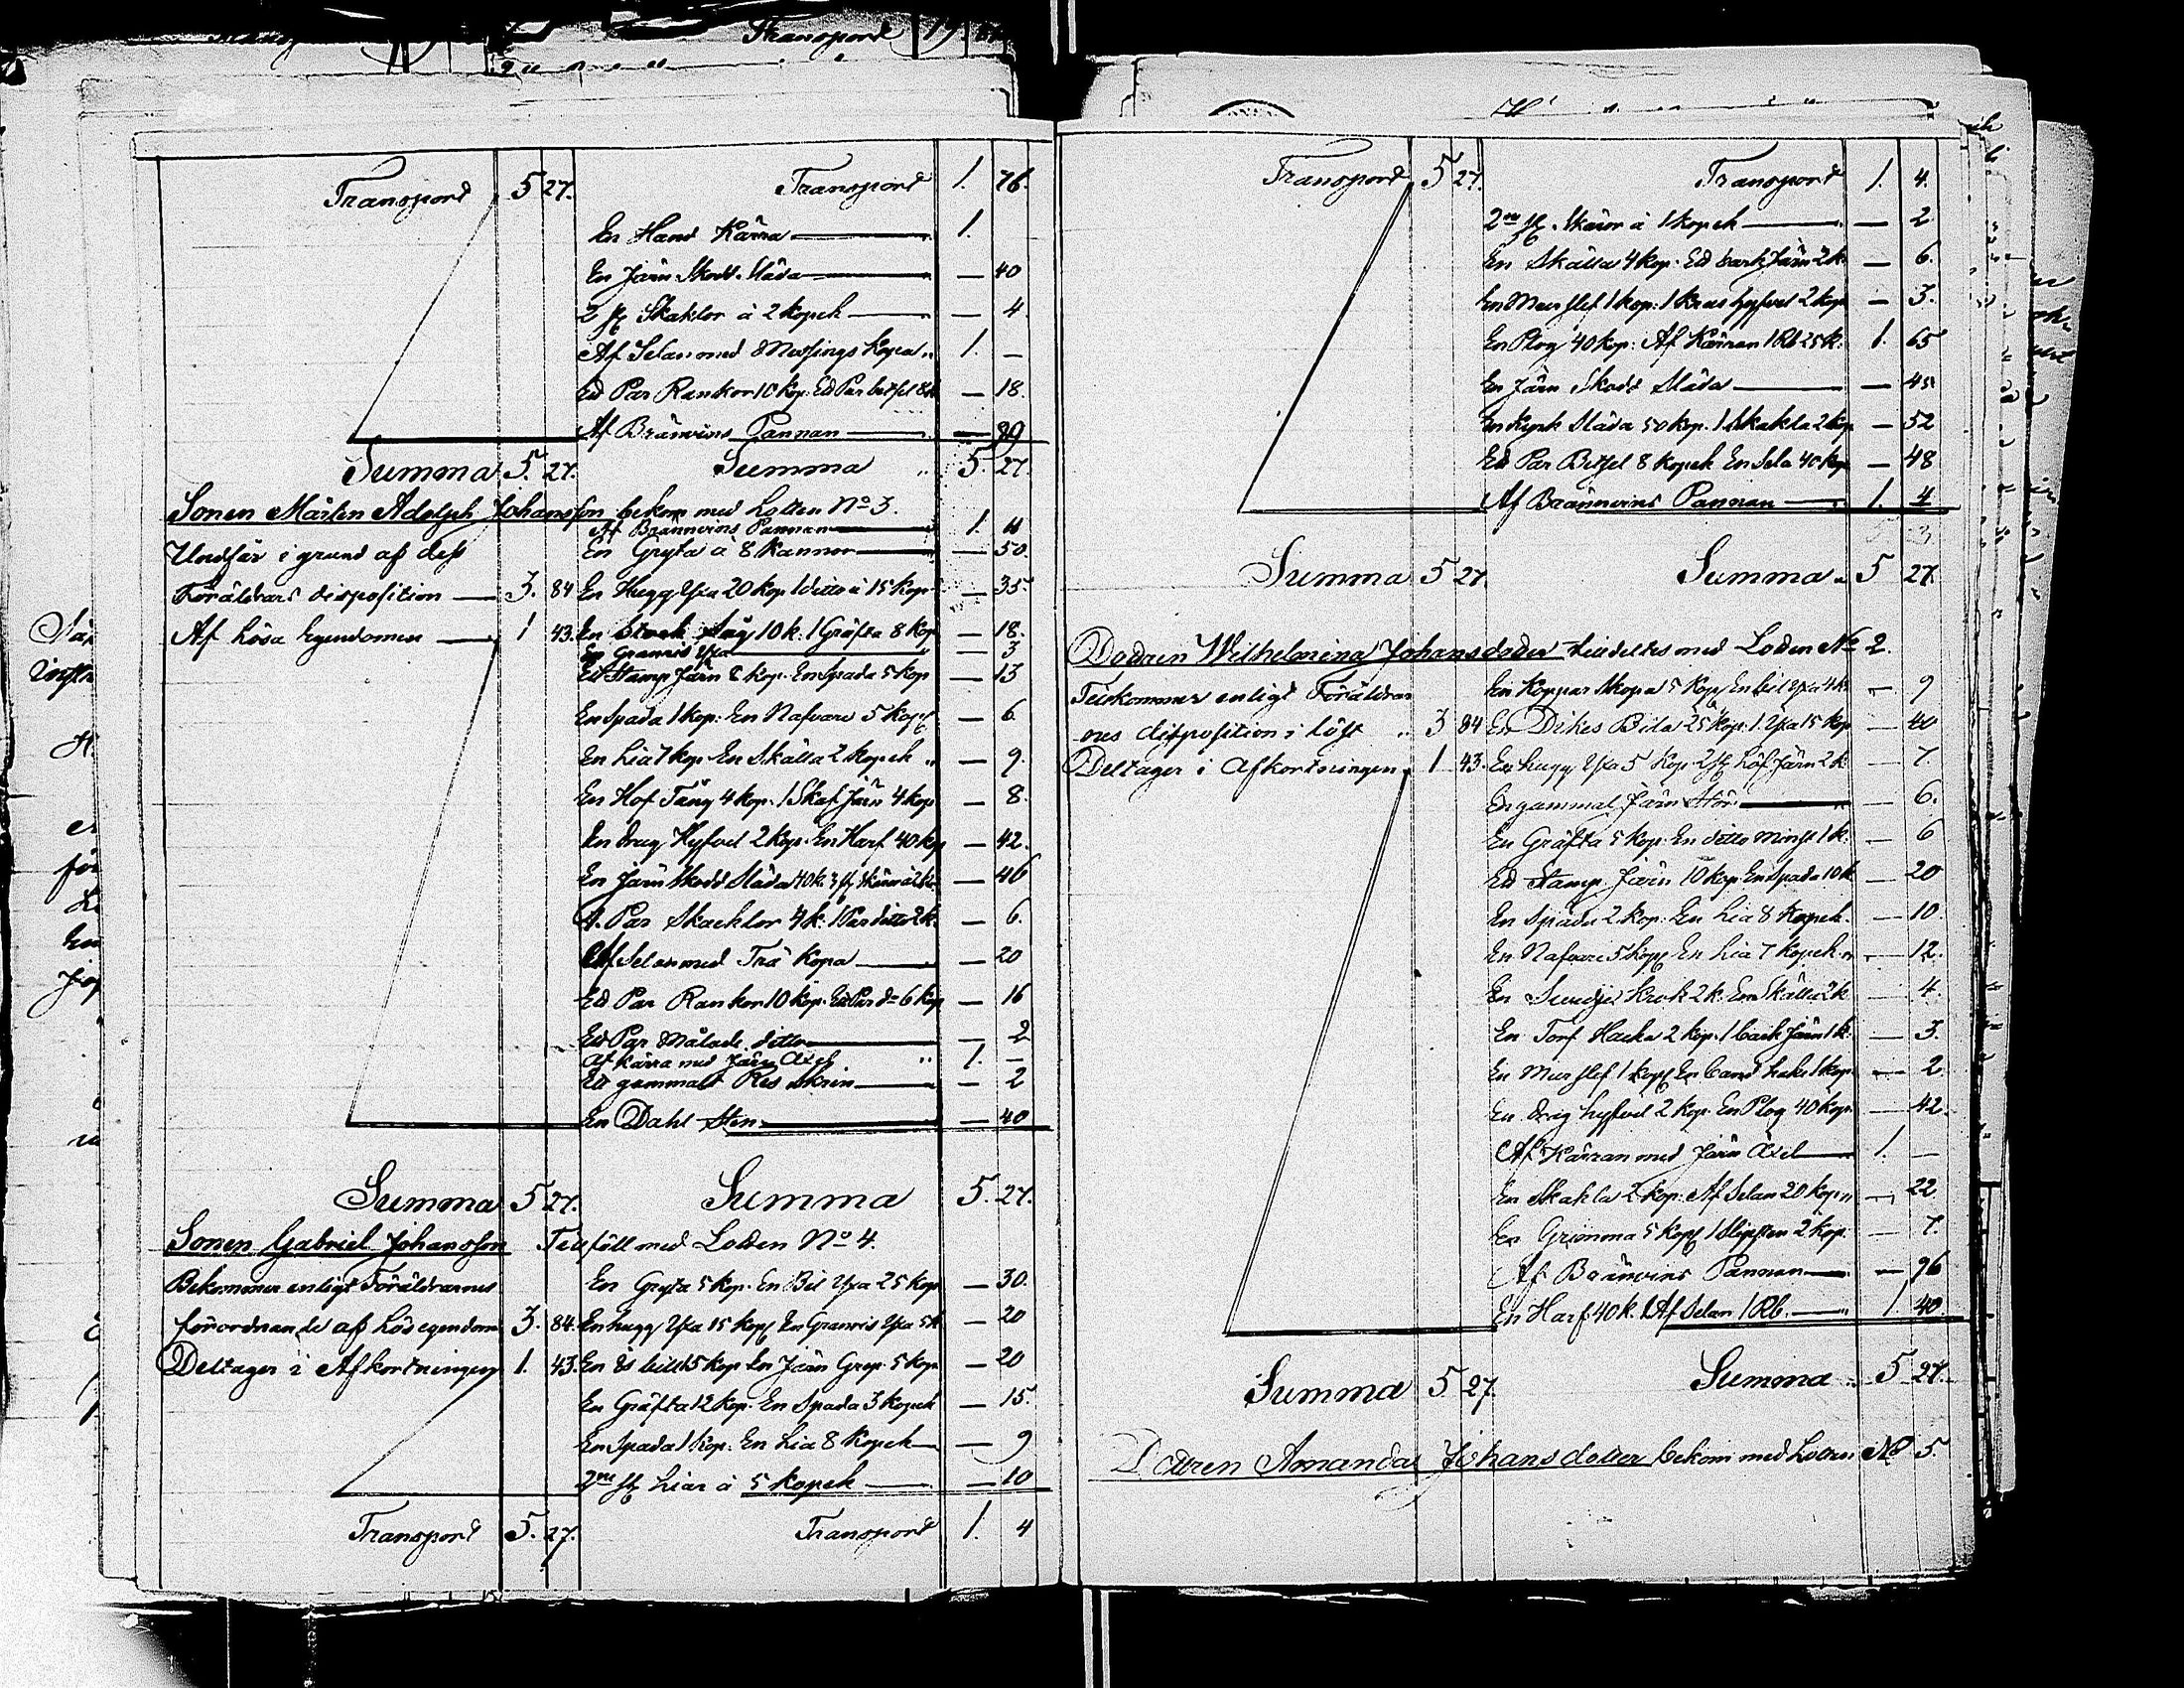 Transport 5 27. Transport 1. 76.
En Hand Kärra 1.
En Järn Skodd Släda — 40
2 st Skaklor à 2 Kopek — 4
Af Selan med 8 Messings Kopa 1. —
Ett Par Rankor 10 Kop: Ett Par betsel 8 k — 18.
Af Bränvins Pannan — 89
Summa 5. 27. Summa 5. 27.
Sonen Mårten Adolph Johansson bekom med Lotten No 3.
Af Brännvins Pannan 1. 11
Undfår i grund af dess En Gryta à 8 Kannor — 50.
Föräldrars disposition — 3. 84 En Hugg Yxa 20 Kop 1 ditto à 15 Kop — 35.
Af Lösa Egendomen — 1 43. En Stock Såg 10 k. 1 Gräfta 8 Kop — 18.
En Granris Yxa — 3
Ett Stamp Järn 8 Kop. En Spada 5 Kop — 13
En Spada 1 Kop: En Nafvare 5 Kop — 6
En Lia 7 Kop En Skälla 2 Kopek — 9.
En Hof Tång 4 Kop: 1 Skaf Järn 4 Kop — 8.
En drag Hyfvel 2 Kop. En Harf 40 Kop — 42.
En Järn Skodd Släda 40 k. 3 st Skäror à 2 k — 46
1. Par Skacklor 4 k. 1 Par ditto 2 k. — 6.
Af Selan med Trä Kopa — 20
Ett Par Rankor 10 Kop. Ett Par do 6 Kop — 16
Ett Par Målade ditto — 2
Af Kärra med Järn Axel 1. —
Ett gammalt Res Skrin — 2
En Dahl Sten — 40
Summa 5 27. Summa 5. 27.
Sonen Gabriel Johansson Tillföll med Lotten No 4.
Bekommer enligt Föräldrarnes En Gryta 5 Kop. En Bil Yxa 25 Kop — 30.
förordnande af Lös egendom 3. 84. En hugg Yxa 15 Kop En Granris Yxa 5 k — 20
Deltager i Afkortningen 1. 43. En Is bill 15 Kop En Järn Grep. 5 Kop — 20
En Gräfta 12 Kop. En Spada 3 Kopek — 15.
En Spada 1 Kop: En Lia 8 Kopek — 9
2ne st Liar à 5 Kopek — 10
Transport 5. 27. Transport 1. 4
Transport 5 27. Transport 1. 4.
2ne st. Skäror à 1 Kopek — 2
En Skälla 4 Kop: Ett bark Järn 2 k. — 6.
En Mur slef 1 Kop: 1 Krus hyfvel 2 Kop — 3.
En Plog 40 Kop: Af Kärran 1 Rb 25 k. 1. 65
En Järn Skodd Släda — 45
En Kyrk Släda 50 Kop. 1 Skakla 2 Kop — 52
Ett Par Betsel 8 Kopek En Sela 40 Kop — 48
Af Brännvins Pannan 1. 4
Summa 5 27. Summa 5 27.
Dottren Wilhelmina Johansdotter tilldeltes med Lotten No 2.
Tillkommer enligt Föräldrar En Koppar Skopa 5 Kop En bil Yxa 4 k. — 9
nes disposition i löst 3 84 En Dikes Bila 25 Kop: 1 Yxa 15 Kop — 40
Deltager i Afkortningen 1 43. En hugg Yxa 5 Kop 2 st Löf Järn 2 k — 7.
En gammal Järn Stör — 6.
En Gräfta 5 Kop. En ditto mindre 1 k. — 6
Ett Stamp Järn 10 Kop En Spada 10 k — 20
En Spada 2 Kop: En Lia 8 Kopek. — 10.
En Nafvare 5 Kop En Lia 7 Kopek — 12.
En krok 2 k. En Skälla 2 k — 4.
En Torf Hacka 2 Kop. 1 bark Järn 1 k. — 3.
En Mur slef 1 Kop En band hake 1 Kop — 2
En drag hyfvel 2 Kop En Plog 40 Kop. — 42
Af Kärran med Järn Axel 1. —
En Skakla 2 Kop: Af Selan 20 Kop — 22
En Grimma 5 Kop 1 Slipsten 2 Kop — 7.
Af Bränvins Pannan — 96
En Harf 40 k. Af Selan 1 Rb. 1 40
Summa 5 27. Summa 5 27.
Dottren Amanda Johansdotter bekom med Lotten No 5